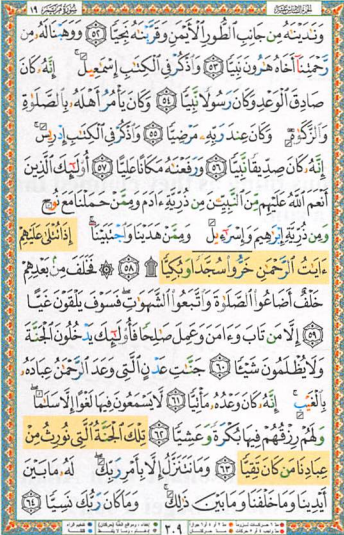 ١٩ سورة مريم
وَنَٰدَيْنَٰهُ مِن جَانِبِ ٱلطُّورِ ٱلْأَيْمَنِ وَقَرَّبْنَٰهُ نَجِيًّا ٥٢ وَوَهَبْنَا لَهُۥ مِن
رَّحْمَتِنَآ أَخَاهُ هَٰرُونَ نَبِيًّا ٥٣ وَٱذْكُرْ فِى ٱلْكِتَٰبِ إِسْمَٰعِيلَ ۚ إِنَّهُۥ كَانَ
صَادِقَ ٱلْوَعْدِ وَكَانَ رَسُولًا نَّبِيًّا ٥٤ وَكَانَ يَأْمُرُ أَهْلَهُۥ بِٱلصَّلَوٰةِ
وَٱلزَّكَوٰةِ وَكَانَ عِندَ رَبِّهِۦ مَرْضِيًّا ٥٥ وَٱذْكُرْ فِى ٱلْكِتَٰبِ إِدْرِيسَ ۚ
إِنَّهُۥ كَانَ صِدِّيقًا نَّبِيًّا ٥٦ وَرَفَعْنَٰهُ مَكَانًا عَلِيًّا ٥٧ أُو۟لَٰٓئِكَ ٱلَّذِينَ
أَنْعَمَ ٱللَّهُ عَلَيْهِم مِّنَ ٱلنَّبِيِّۦنَ مِن ذُرِّيَّةِ ءَادَمَ وَمِمَّنْ حَمَلْنَا مَعَ نُوحٍ
وَمِن ذُرِّيَّةِ إِبْرَٰهِيمَ وَإِسْرَٰٓءِيلَ وَمِمَّنْ هَدَيْنَا وَٱجْتَبَيْنَآ ۚ إِذَا تُتْلَىٰ عَلَيْهِمْ
ءَايَٰتُ ٱلرَّحْمَٰنِ خَرُّوا۟ سُجَّدًا وَبُكِيًّا ۩ ٥٨ ۞ فَخَلَفَ مِنۢ بَعْدِهِمْ
خَلْفٌ أَضَاعُوا۟ ٱلصَّلَوٰةَ وَٱتَّبَعُوا۟ ٱلشَّهَوَٰتِ ۖ فَسَوْفَ يَلْقَوْنَ غَيًّا
٥٩ إِلَّا مَن تَابَ وَءَامَنَ وَعَمِلَ صَٰلِحًا فَأُو۟لَٰٓئِكَ يَدْخُلُونَ ٱلْجَنَّةَ
وَلَا يُظْلَمُونَ شَيْـًٔا ٦٠ جَنَّٰتِ عَدْنٍ ٱلَّتِى وَعَدَ ٱلرَّحْمَٰنُ عِبَادَهُۥ
بِٱلْغَيْبِ ۚ إِنَّهُۥ كَانَ وَعْدُهُۥ مَأْتِيًّا ٦١ لَّا يَسْمَعُونَ فِيهَا لَغْوًا إِلَّا سَلَٰمًا ۖ
وَلَهُمْ رِزْقُهُمْ فِيهَا بُكْرَةً وَعَشِيًّا ٦٢ تِلْكَ ٱلْجَنَّةُ ٱلَّتِى نُورِثُ مِنْ
عِبَادِنَا مَن كَانَ تَقِيًّا ٦٣ وَمَا نَتَنَزَّلُ إِلَّا بِأَمْرِ رَبِّكَ ۖ لَهُۥ مَا بَيْنَ
أَيْدِينَا وَمَا خَلْفَنَا وَمَا بَيْنَ ذَٰلِكَ ۚ وَمَا كَانَ رَبُّكَ نَسِيًّا ٦٤
٣٠٩